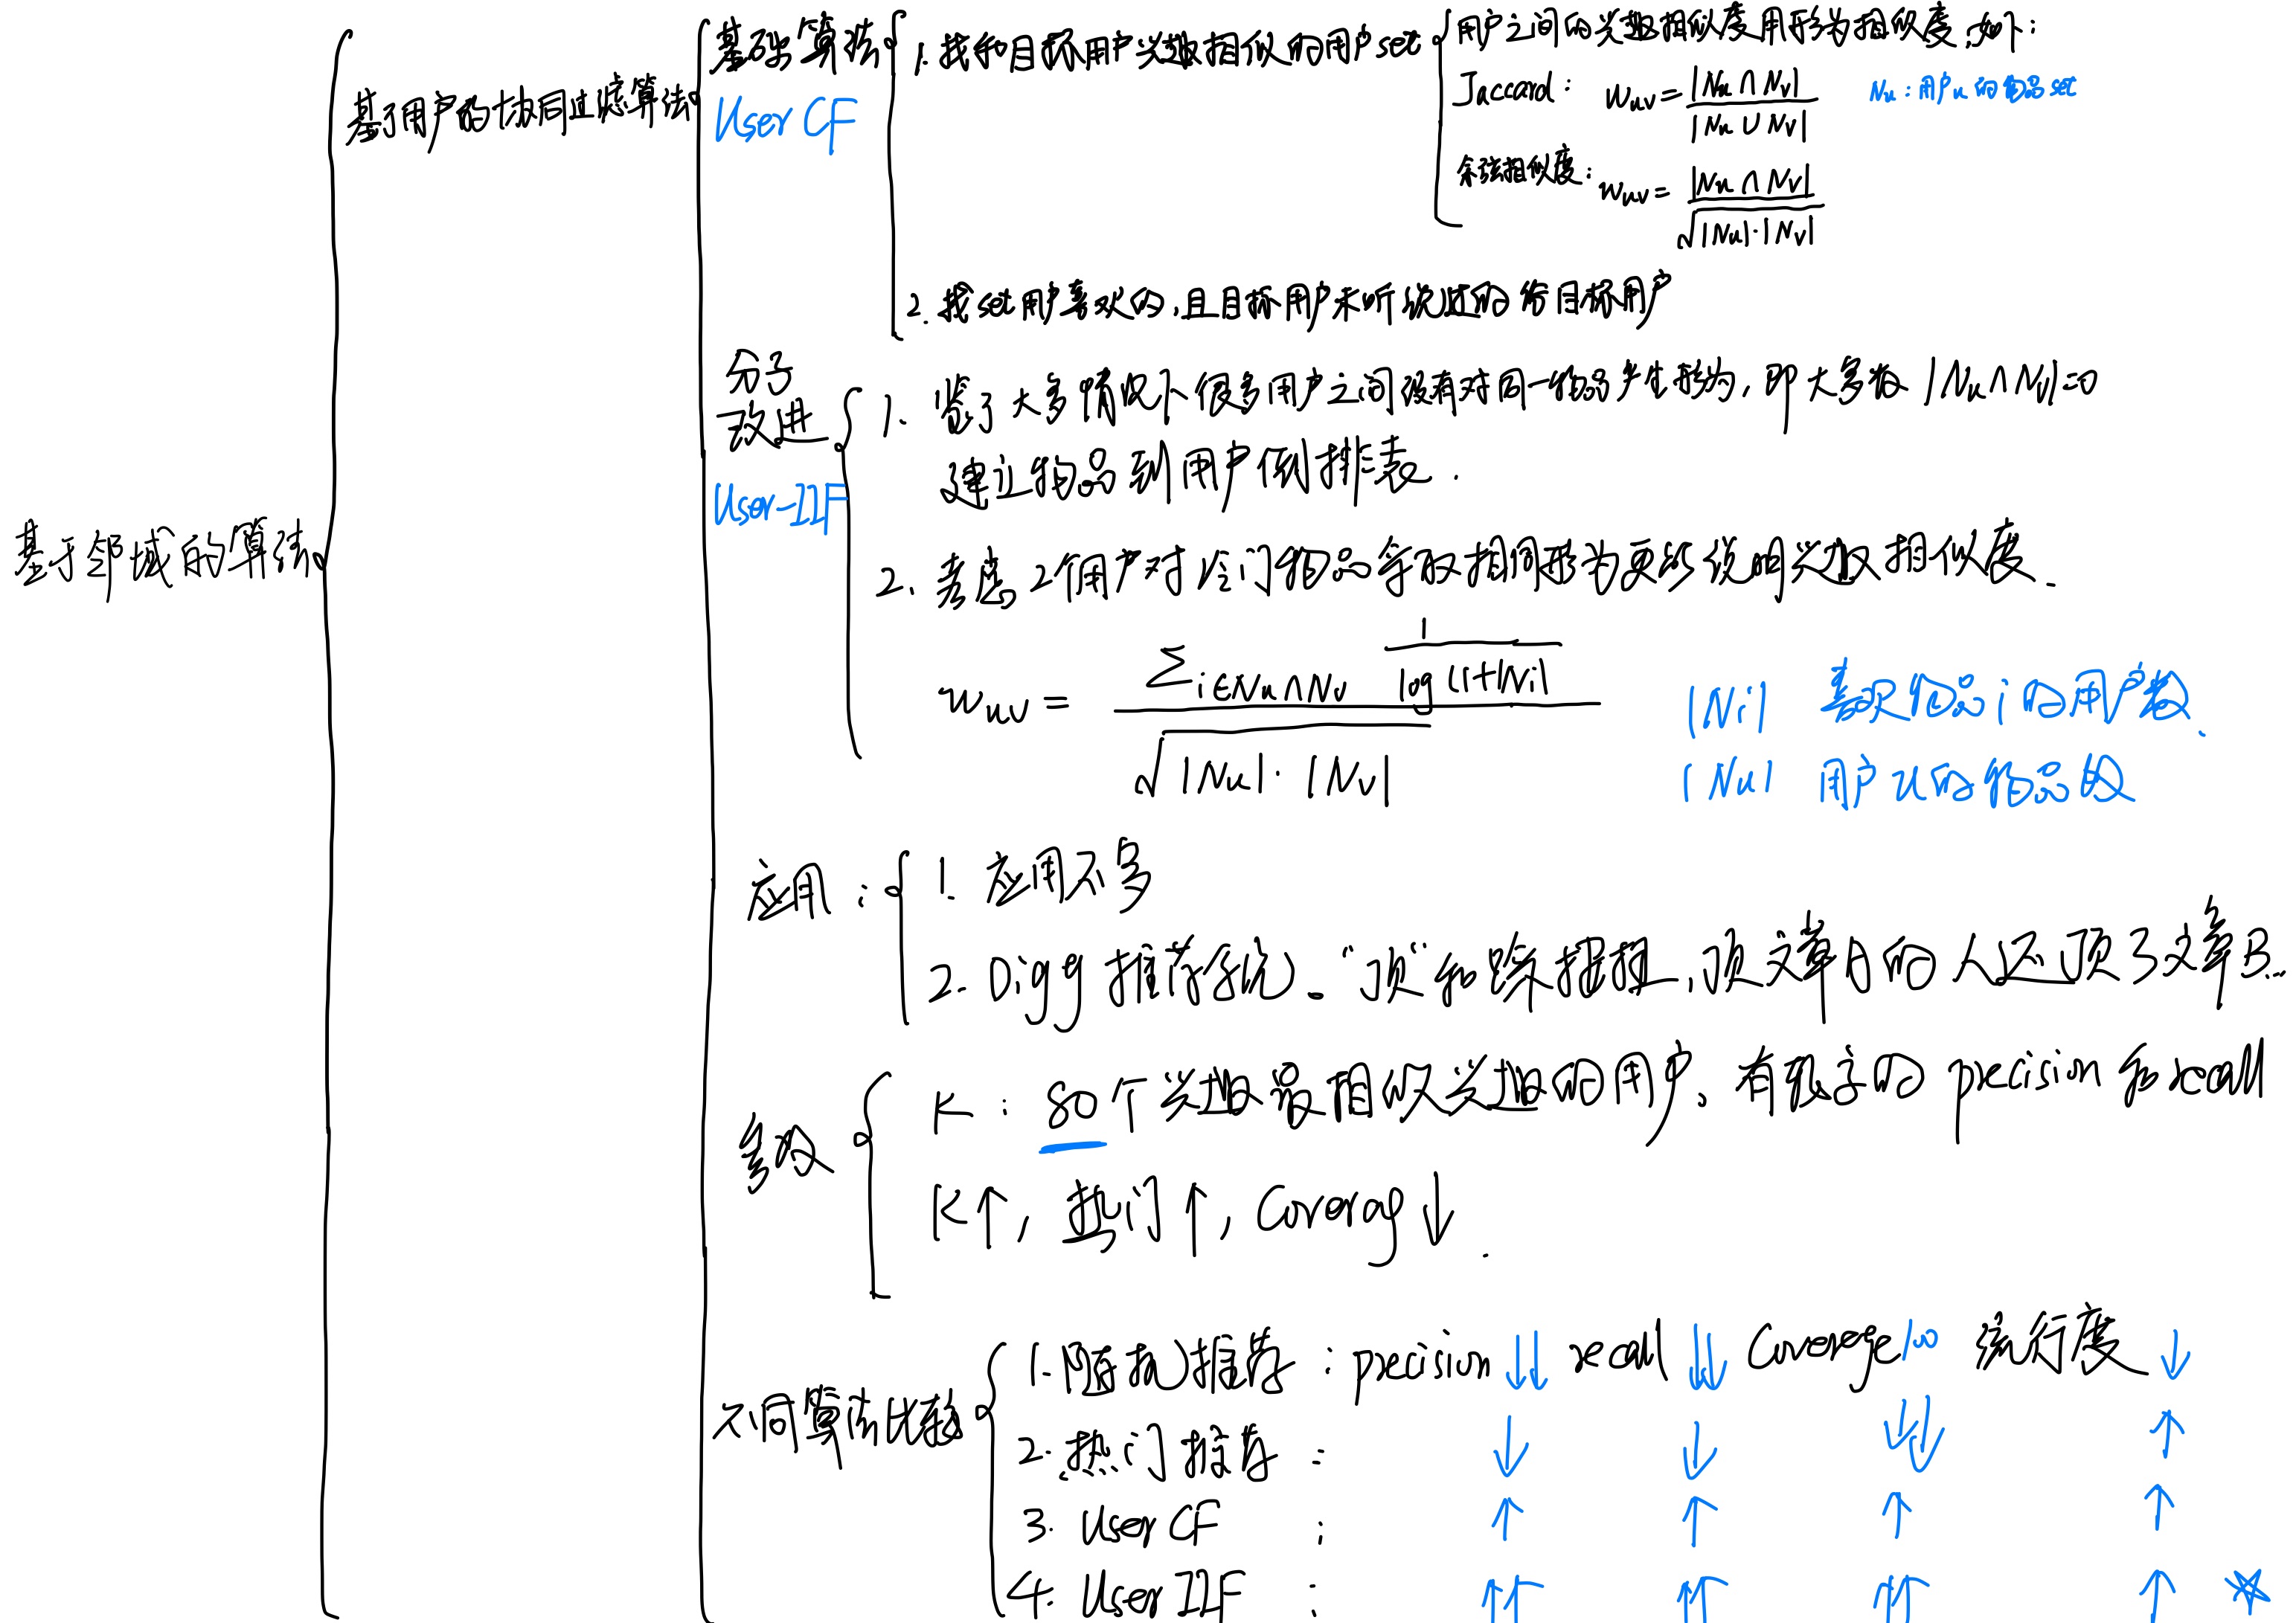 基于邻域的算法
基于用户的协同过滤算法
基础算法
User CF
1. 找和目标用户兴趣相似的用户set
用户之间的兴趣相似度用形为相似度,如下:
Jaccard: Wuv = |Nu ∩ Nv| / |Nu ∪ Nv|
Nu:用户u的物品set
余弦相似度: Wuv = |Nu ∩ Nv| / √|Nu|·|Nv|
2. 找set用户喜欢的,且目标用户未听说过的给目标用户
分子
改进
User-IIF
1. 鉴于大多情况下很多用户之间没有对同一物品产生形为,即大多数 |Nu∩Nv|=0
建立物品到用户倒排表.
2. 考虑2个用户对冷门物品采取相同形为更能说明兴趣相似度.
Wuv = ∑i∈Nu∩Nv 1 / log(1+|Ni|) / √|Nu|·|Nv|
|Ni| 喜欢物品i的用户数.
|Nu| 用户u的物品数
应用:
1. 应用不多
2. Digg 推荐系统. "顶"和踩按钮,顶文章A的人还顶了文章B..
参数
K: 80个兴趣最相似兴趣的用户、有较高的 precision 和 recall
K↑, 热门↑, Coverag↓.
不同算法比较
1. 随机推荐: precision ↓↓ recall ↓↓ Coverege 100 流行度 ↓
2. 热门推荐: ↓ ↓ ↓↓ ↑
3. User CF : ↑ ↑ ↑ ↑
4. User IIF : ↑↑ ↑↑ ↑↑ ↑ ☆